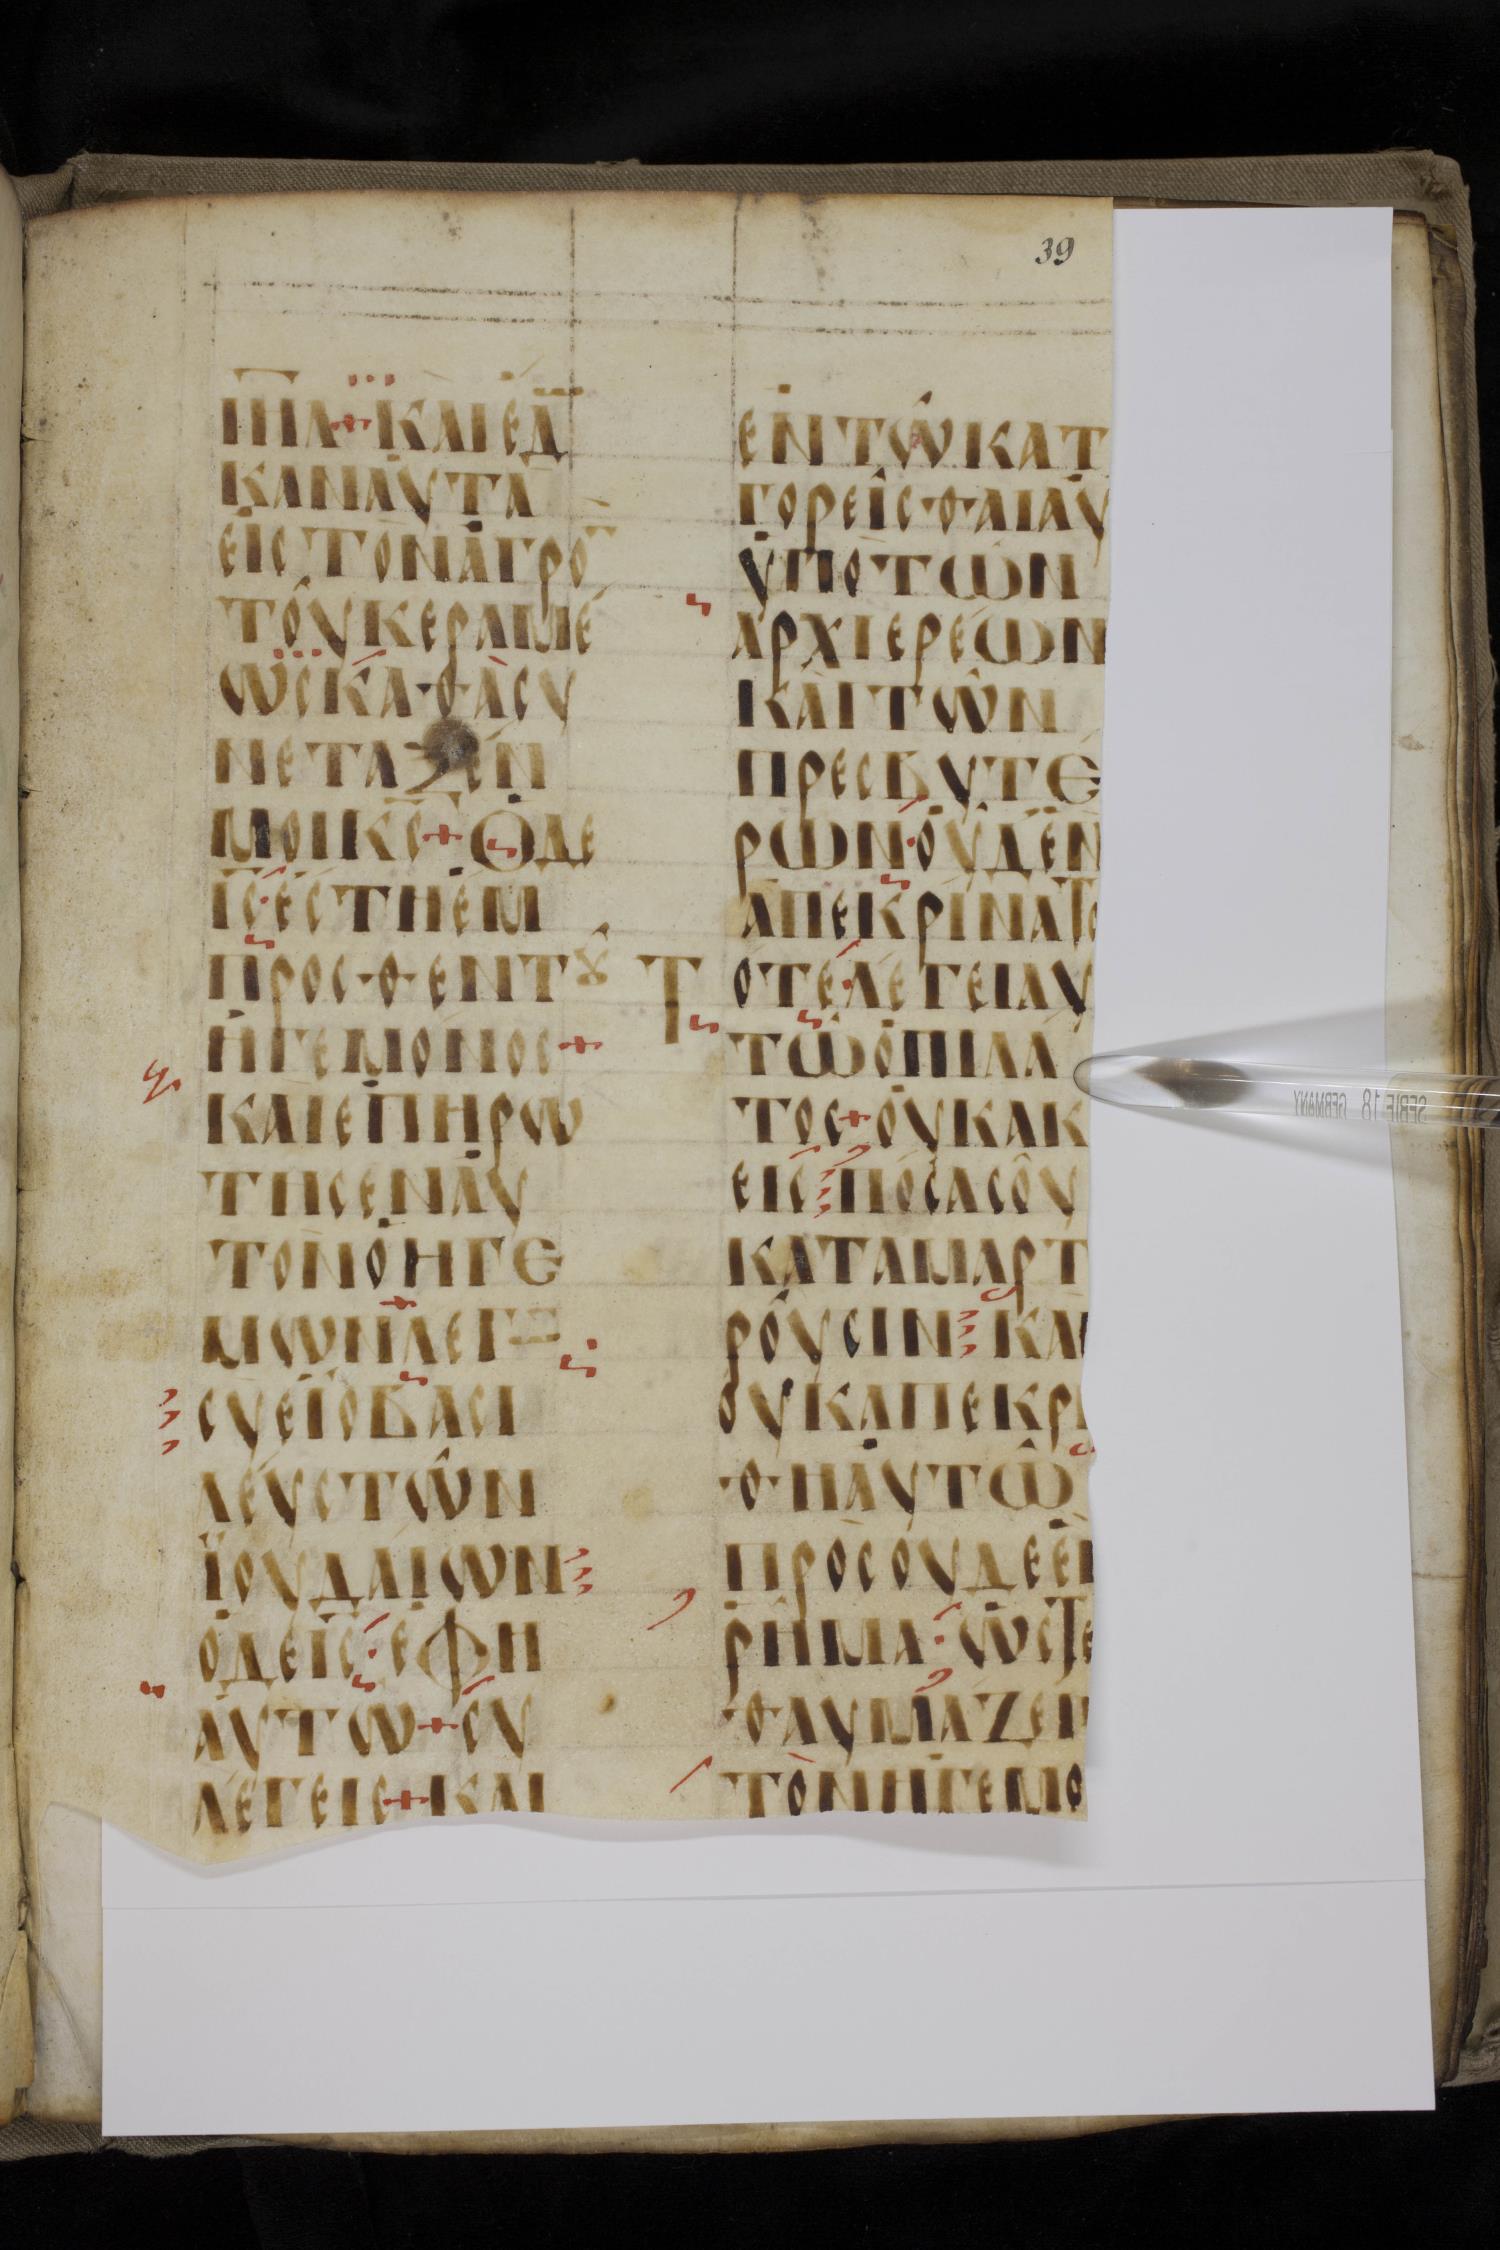 39
ΙΗΛ + ΚΑΙ ΕΔ
ΚΑΝ ΑΥΤΑ
ΕΙΣ ΤΟΝ ΑΓΡΟ̅
ΤΟΥ ΚΕΡΑΜΕ
ΩΣ ΚΑΘΑ ΣΥ
ΝΕΤΑΞΕΝ
ΜΟΙ Κ̅Σ̅ + Ο ΔΕ
Ι̅Σ̅ · ΕΣΤΗ ΕΜ
ΠΡΟΣΘΕΝ ΤȢ
ΗΓΕΜΟΝΟΣ +
ΚΑΙ ΕΠΗΡΩ
ΤΗΣΕΝ ΑΥ
ΤΟΝ Ο ΗΓΕ
ΜΩΝ ΛΕΓ
ΣΥ ΕΙ Ο ΒΑΣΙ
ΛΕΥΣ ΤΩΝ
ΪΟΥΔΑΙΩΝ
Ο ΔΕ Ι̅Σ̅ · ΕΦΗ
ΑΥΤΩ + ΣΥ
ΛΕΓΕΙΣ + ΚΑΙ
ΕΝ ΤΩ ΚΑΤ
ΓΟΡΕΙΣΘΑΙ ΑΥ
ΥΠΟ ΤΩΝ
ΑΡΧΙΕΡΕΩΝ
ΚΑΙ ΤΩΝ
ΠΡΕΣΒΥΤΕ
ΡΩΝ · ΟΥΔΕΝ
ΑΠΕΚΡΙΝΑΤΟ
ΤΟΤΕ · ΛΕΓΕΙ ΑΥ
ΤΩ Ο ΠΙΛΑ
ΤΟΣ + ΟΥΚ ΑΚ
ΕΙΣ ΠΟΣΑ ΣΟΥ
ΚΑΤΑΜΑΡΤ
ΡΟΥΣΙΝ ΚΑΙ
ΟΥΚ ΑΠΕΚΡΙ
ΘΗ ΑΥΤΩ
ΠΡΟΣ ΟΥΔΕ ΕΝ
ΡΗΜΑ · ΩΣΤΕ
ΘΑΥΜΑΖΕΙΝ
ΤΟΝ ΗΓΕΜΟ
SERIE 18 GERMANY